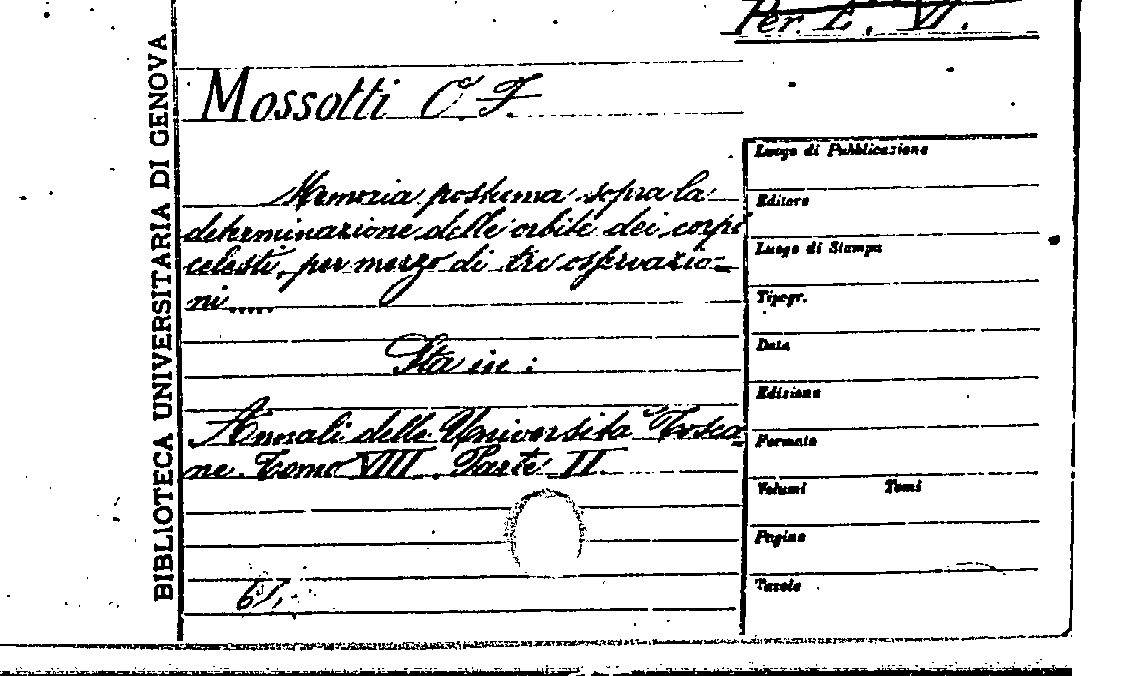 Per. E. VI.
BIBLIOTECA UNIVERSITARIA DI GENOVA
Mossotti O F.
Memoria postuma sopra la
determinazione delle orbite dei corpi
celesti, per mezzo di tre osservazio=
ni.....
Sta in :
Annali delle Università Tosca=
ne. Tomo VIII. Parte II.
Luogo di Pubblicazione
Editore
Luogo di Stampa
Tipogr.
Data
Edizione
Formato
Volumi Tomi
Pagine
Tavole